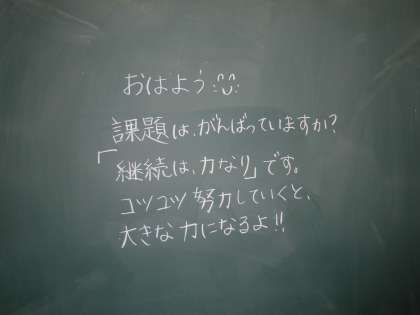 おはよう
課題は、がんばっていますか?
「継続は、力なり」です。
コツコツ努力していくと、
大きな力になるよ!!